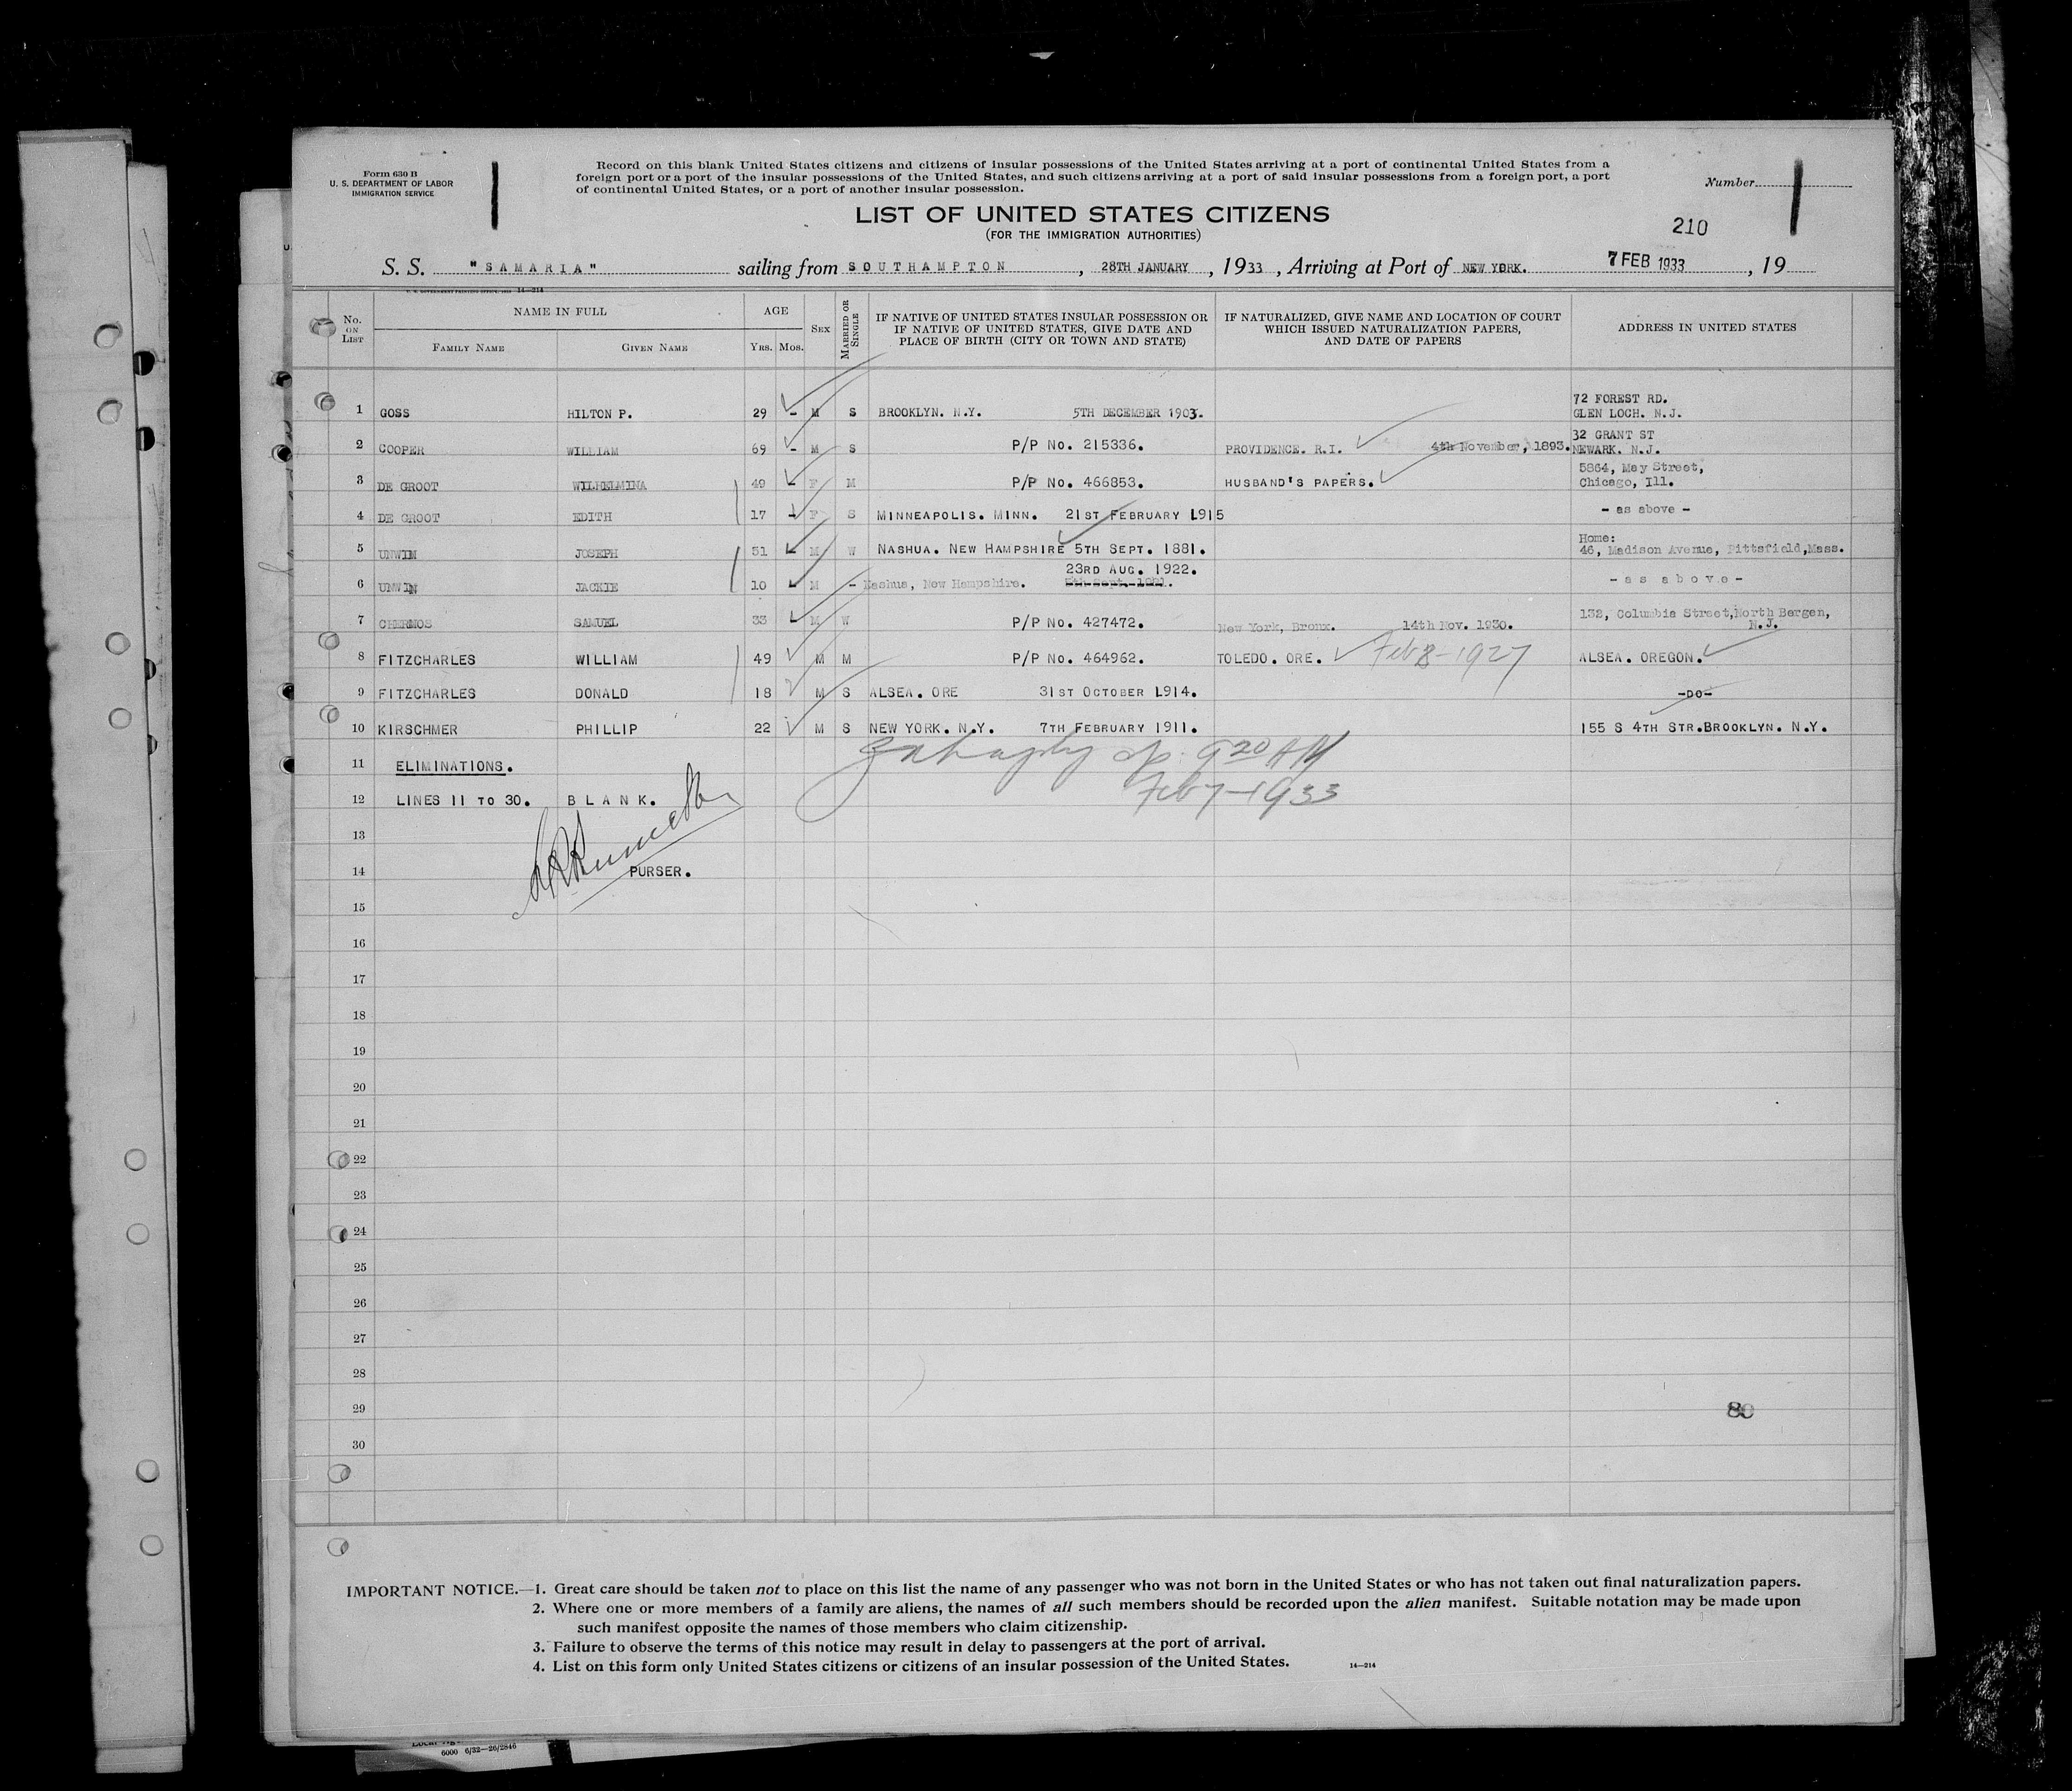 Form 630 B
U. S. DEPARTMENT OF LABOR
IMMIGRATION SERVICE
Record on this blank United States citizens and citizens of insular possessions of the United States arriving at a port of continental United States from a
foreign port or a port of the insular possessions of the United States, and such citizens arriving at a port of said insular possessions from a foreign port, a port
of continental United States, or a port of another insular possession.
Number
LIST OF UNITED STATES CITIZENS
(FOR THE IMMIGRATION AUTHORITIES)
210
S. S. "SAMARIA" sailing from SOUTHAMPTON, 28TH JANUARY, 1933, Arriving at Port of NEW YORK. 7 FEB 1933, 19
14—214
No. ON LIST
NAME IN FULL
FAMILY NAME GIVEN NAME
AGE
YRS. MOS.
SEX
MARRIED OR SINGLE
IF NATIVE OF UNITED STATES INSULAR POSSESSION OR
IF NATIVE OF UNITED STATES, GIVE DATE AND
PLACE OF BIRTH (CITY OR TOWN AND STATE)
IF NATURALIZED, GIVE NAME AND LOCATION OF COURT
WHICH ISSUED NATURALIZATION PAPERS,
AND DATE OF PAPERS
ADDRESS IN UNITED STATES
72 FOREST RD.
1 GOSS HILTON P. 29 - M S BROOKLYN. N.Y. 5TH DECEMBER 1903. GLEN LOCH. N.J.
32 GRANT ST
2 COOPER WILLIAM 69 - M S P/P No. 215336. PROVIDENCE. R.I. 4th November, 1893. NEWARK. N.J.
5864, May Street,
3 DE GROOT WILHELMINA 49 - F M P/P No. 466853. HUSBAND'S PAPERS. Chicago, Ill.
4 DE GROOT EDITH 17 - F S MINNEAPOLIS. MINN. 21ST FEBRUARY 1915 - as above -
Home:
5 UNWIN JOSEPH 51 - M W NASHUA. NEW HAMPSHIRE 5TH SEPT. 1881. 46, Madison Avenue, Pittsfield,Mass.
23RD AUG. 1922.
6 UNWIN JACKIE 10 - M - Nashua, New Hampshire. 5th Sept. 1881. - as above -
7 CHERNOS SAMUEL 33 - M W P/P No. 427472. New York, Bronx. 14th Nov. 1930. 132, Columbia Street,North Bergen,
N.J.
8 FITZCHARLES WILLIAM 49 M M P/P No. 464962. TOLEDO. ORE. Feb 8-1927 ALSEA. OREGON.
9 FITZCHARLES DONALD 18 M S ALSEA. ORE 31ST OCTOBER 1914. -DO-
10 KIRSCHMER PHILLIP 22 M S NEW YORK. N.Y. 7TH FEBRUARY 1911. 155 S 4TH STR.BROOKLYN. N.Y.
9 20 AM
11 ELIMINATIONS.
Feb 7-1933
12 LINES 11 TO 30. BLANK.
13
14 PURSER.
15
16
17
18
19
20
21
22
23
24
25
26
27
28
29 80
30
IMPORTANT NOTICE.—1. Great care should be taken not to place on this list the name of any passenger who was not born in the United States or who has not taken out final naturalization papers.
2. Where one or more members of a family are aliens, the names of all such members should be recorded upon the alien manifest. Suitable notation may be made upon
such manifest opposite the names of those members who claim citizenship.
3. Failure to observe the terms of this notice may result in delay to passengers at the port of arrival.
4. List on this form only United States citizens or citizens of an insular possession of the United States. 14—214
6000 6/32—26/2846